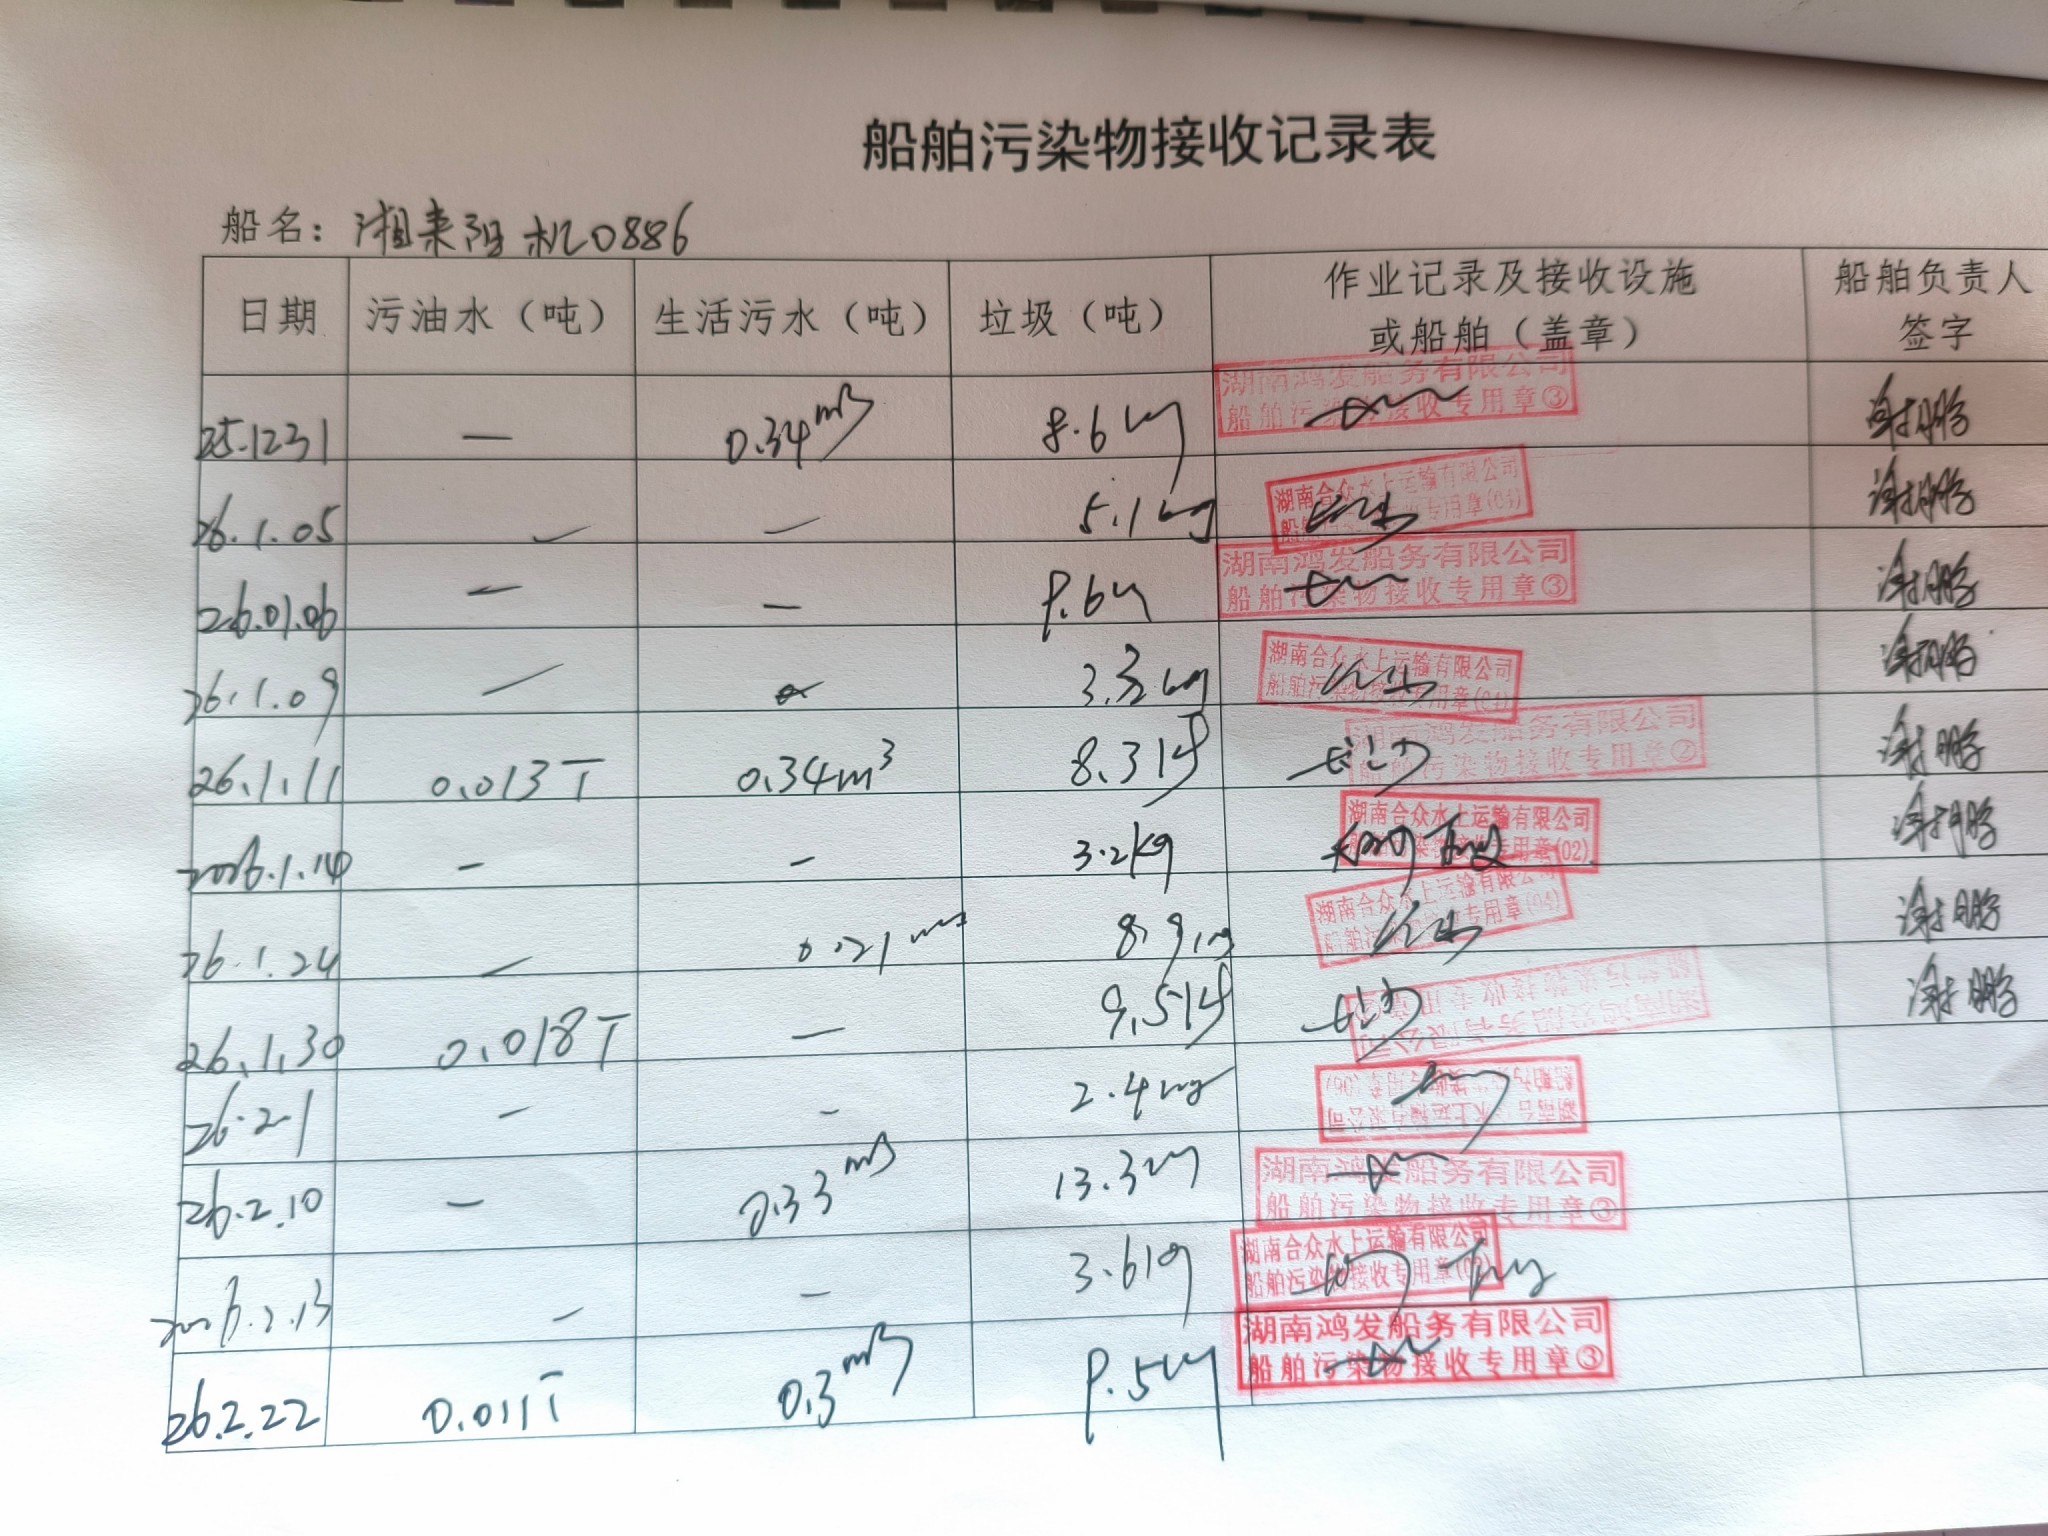 船舶污染物接收记录表
船名：湘耒阳机0886
日期 污油水（吨） 生活污水（吨） 垃圾（吨） 作业记录及接收设施或船舶（盖章） 船舶负责人签字
25.1231 — 0.34m3 8.6kg 湖南鸿发船务有限公司 船舶污染物接收专用章③
26.1.05 — — 5.1kg 湖南合众水上运输有限公司
26.01.06 — — 湖南鸿发船务有限公司 船舶污染物接收专用章③
26.1.09 — 湖南合众水上运输有限公司 船舶污染物接收专用章(04)
26.1.11 0.013T 0.34m³ 8.3kg 长沙 湖南鸿发船务有限公司 船舶污染物接收专用章②
2026.1.14 — — 3.2kg 湖南合众水上运输有限公司 船舶污染物接收专用章(02)
26.1.24 — 0.21m3 8.9kg 湖南合众水上运输有限公司 船舶污染物接收专用章(04)
26.1.30 0.018T — 9.5kg 长沙 湖南鸿发船务有限公司 船舶污染物接收专用章
26.2.1 — — 2.4kg 湖南合众水上运输有限公司
26.2.10 — 0.33m3 13.3kg 湖南鸿发船务有限公司 船舶污染物接收专用章③
2026.2.13 — — 3.6kg 湖南合众水上运输有限公司 船舶污染物接收专用章
26.2.22 0.011T 0.3m3 湖南鸿发船务有限公司 船舶污染物接收专用章③